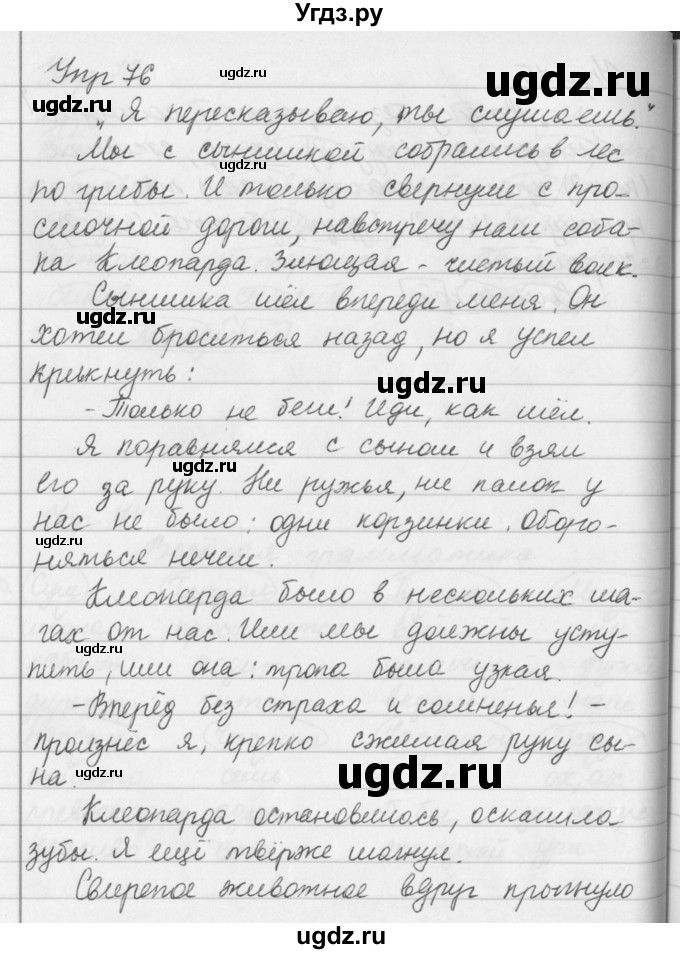 Угдз.ру
Упр 76
ugdz.ru
ugdz.ru
ugdz.ru
„Я пересказываю, ты слушаешь."
Мы с сынишкой собрались в лес
ugdz.ru
ugdz.ru
по грибы. И только свернули с про-
сёлочной дороги, навстречу нам соба-
ка Клеопарда. Злющая - чистый волк.
Сынишка шёл впереди меня. Он
ugdz.ru
ugdz.ru
хотел броситься назад, но я успел
крикнуть:
ugdz.ru
- Только не беги! Иди, как шёл.
Я поравнялся с сыном и взял
ugdz.ru
его за руку. Ни ружья, ни палок у
нас не было: одни корзинки. Оборо-
ugdz.ru
няться нечем.
Клеопарда была в нескольких ша-
гах от нас. Или мы должны усту-
ugdz.ru
пить, или она: тропа была узкая.
- Вперёд без страха и сомненья! -
произнёс я, крепко сжимая руку сы-
ugdz.ru
на.
ugdz.ru
Клеопарда остановилась, оскалила
ugdz.ru
зубы. Я ещё твёрже шагнул.
Свирепое животное вдруг прыгнуло
ugdz.ru